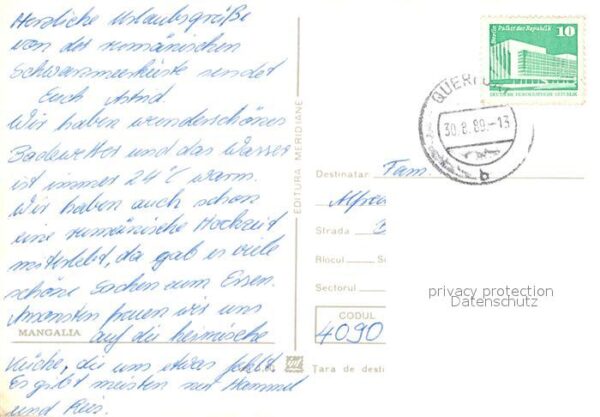 Herzliche Urlaubsgrüße
von der rumänischen
Schwarzmeerküste sendet
Euch Astrid.
Wir haben wunderschönes
Badewetter und das Wasser
ist immer 24°C warm.
Wir haben auch schon
eine rumänische Hochzeit
miterlebt, da gab es viele
schöne Sachen zum Essen.
Ansonsten freuen wir uns
MANGALIA
auf die heimische
Küche, die uns etwas fehlt.
Es gibt meisten nur Hammel
und Reis.
EDITURA MERIDIANE
Berlin Palast der Republik
10
DEUTSCHE DEMOKRATISCHE REPUBLIK
QUERFU
30.8.89.-13
b
Destinatar Fam.
Alfre
Strada B
Blocul S
Sectorul
privacy protection
Datenschutz
CODUL
4090
Țara de desti